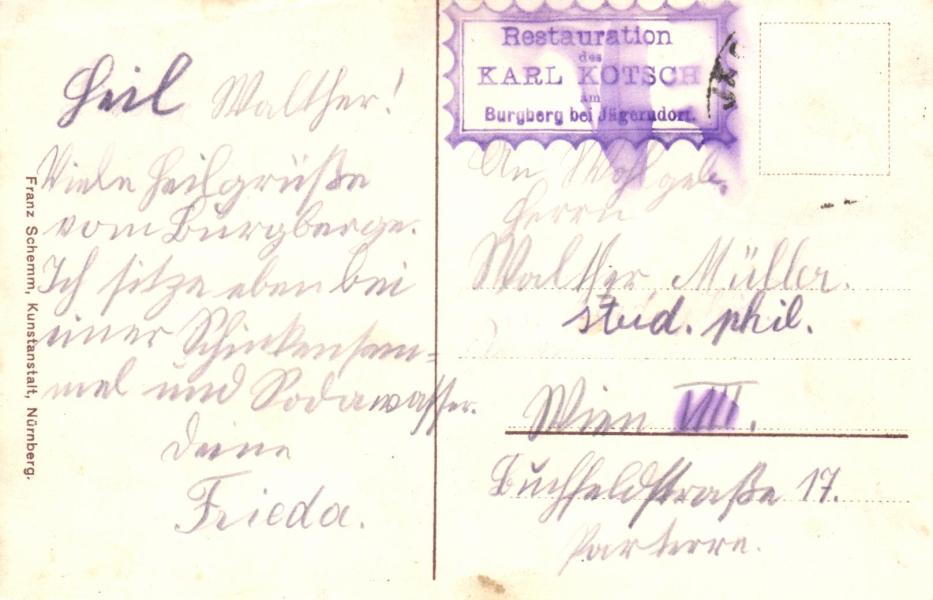 Heil Walther!
Viele Heilgrüße
vom Burgberge.
Ich sitze eben bei
einer Schinkensem-
mel und Sodawasser.
Deine
Frieda.
Franz Schemm, Kunstanstalt, Nürnberg.
Restauration
des
KARL KOTSCH
am
Burgberg bei Jägerndorf.
An Wohlgeb.
Herrn
Walther Müller.
stud. phil.
Wien VIII.
Buchfeldstraße 17.
Parterre.